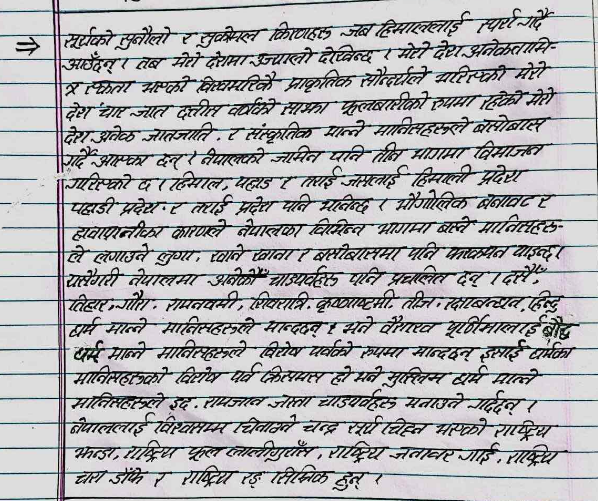 ⇒ सूर्यको सुनौलो र सुकोमल किरणहरू जब हिमाललाई स्पर्श गर्दै
आउँछन् । तब मेरो देशमा उज्यालो देखिन्छ । मेरो देश अनेकतामि-
त्र एकता भएको विश्वभरिकै प्राकृतिक सौन्दर्यले भरिएको मेरो
देश चार जात छत्तीस वर्णको साझा फूलबारीको रूपमा रहेको मेरो
देश अनेक जातजाति र संस्कृतिक मान्ने मानिसहरूले बसोबास
गर्दै आएका छन् । नेपालको जमिन पनि तीन भागमा विभाजन
गरिएको छ । हिमाल, पहाड र तराई जसलाई हिमाली प्रदेश
पहाडी प्रदेश र तराई प्रदेश पनि भनिन्छ । भौगोलिक बनावट र
हावापानीका कारणले नेपालका विभिन्न भागमा बस्ने मानिसहरू-
ले लगाउने लुगा, खाने खाना र बसोबासमा पनि फरकपन पाइन्छ।
यसैगरी नेपालमा अनेकौँ चाडपर्वहरू पनि प्रचलित छन् । दसैँ,
तिहार, गौरा, रामनवमी, शिवरात्रि, कृष्णाष्टमी, तीज, रक्षाबन्धन, हिन्दु
धर्म मान्ने मानिसहरूले मान्दछन् र भने वैशाख पूर्णिमालाई बौद्ध
धर्म मान्ने मानिसहरूले विशेष पर्वको रूपमा मान्दछन् इसाई धर्मका
मानिसहरूको विशेष पर्व क्रिसमस हो भने मुस्लिम धर्म मान्ने
मानिसहरूले इद, रामजान जस्ता चाडपर्वहरू मनाउने गर्दछन् ।
नेपाललाई विश्वसामु चिनाउने चन्द्र सूर्य चिह्न भएको राष्ट्रिय
झन्डा, राष्ट्रिय फूल लालीगुराँस, राष्ट्रिय जनावर गाई, राष्ट्रिय
चरा डाँफे र राष्ट्रिय रङ् सिम्रिक हुन् ।